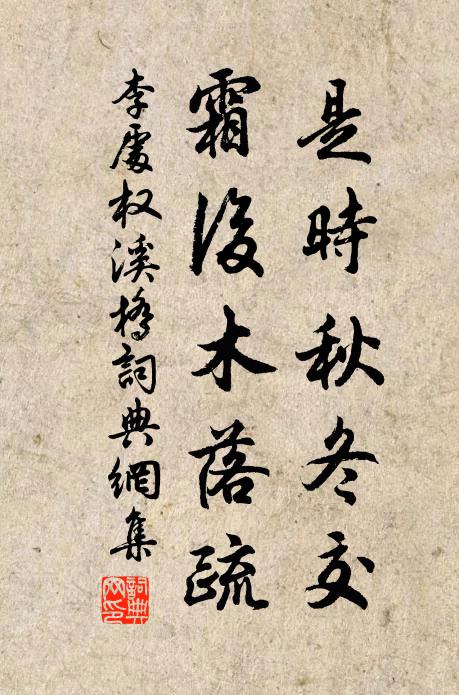 是時秋冬交
霜後木落疏
李處权溪橋詞典網集
詞典网印